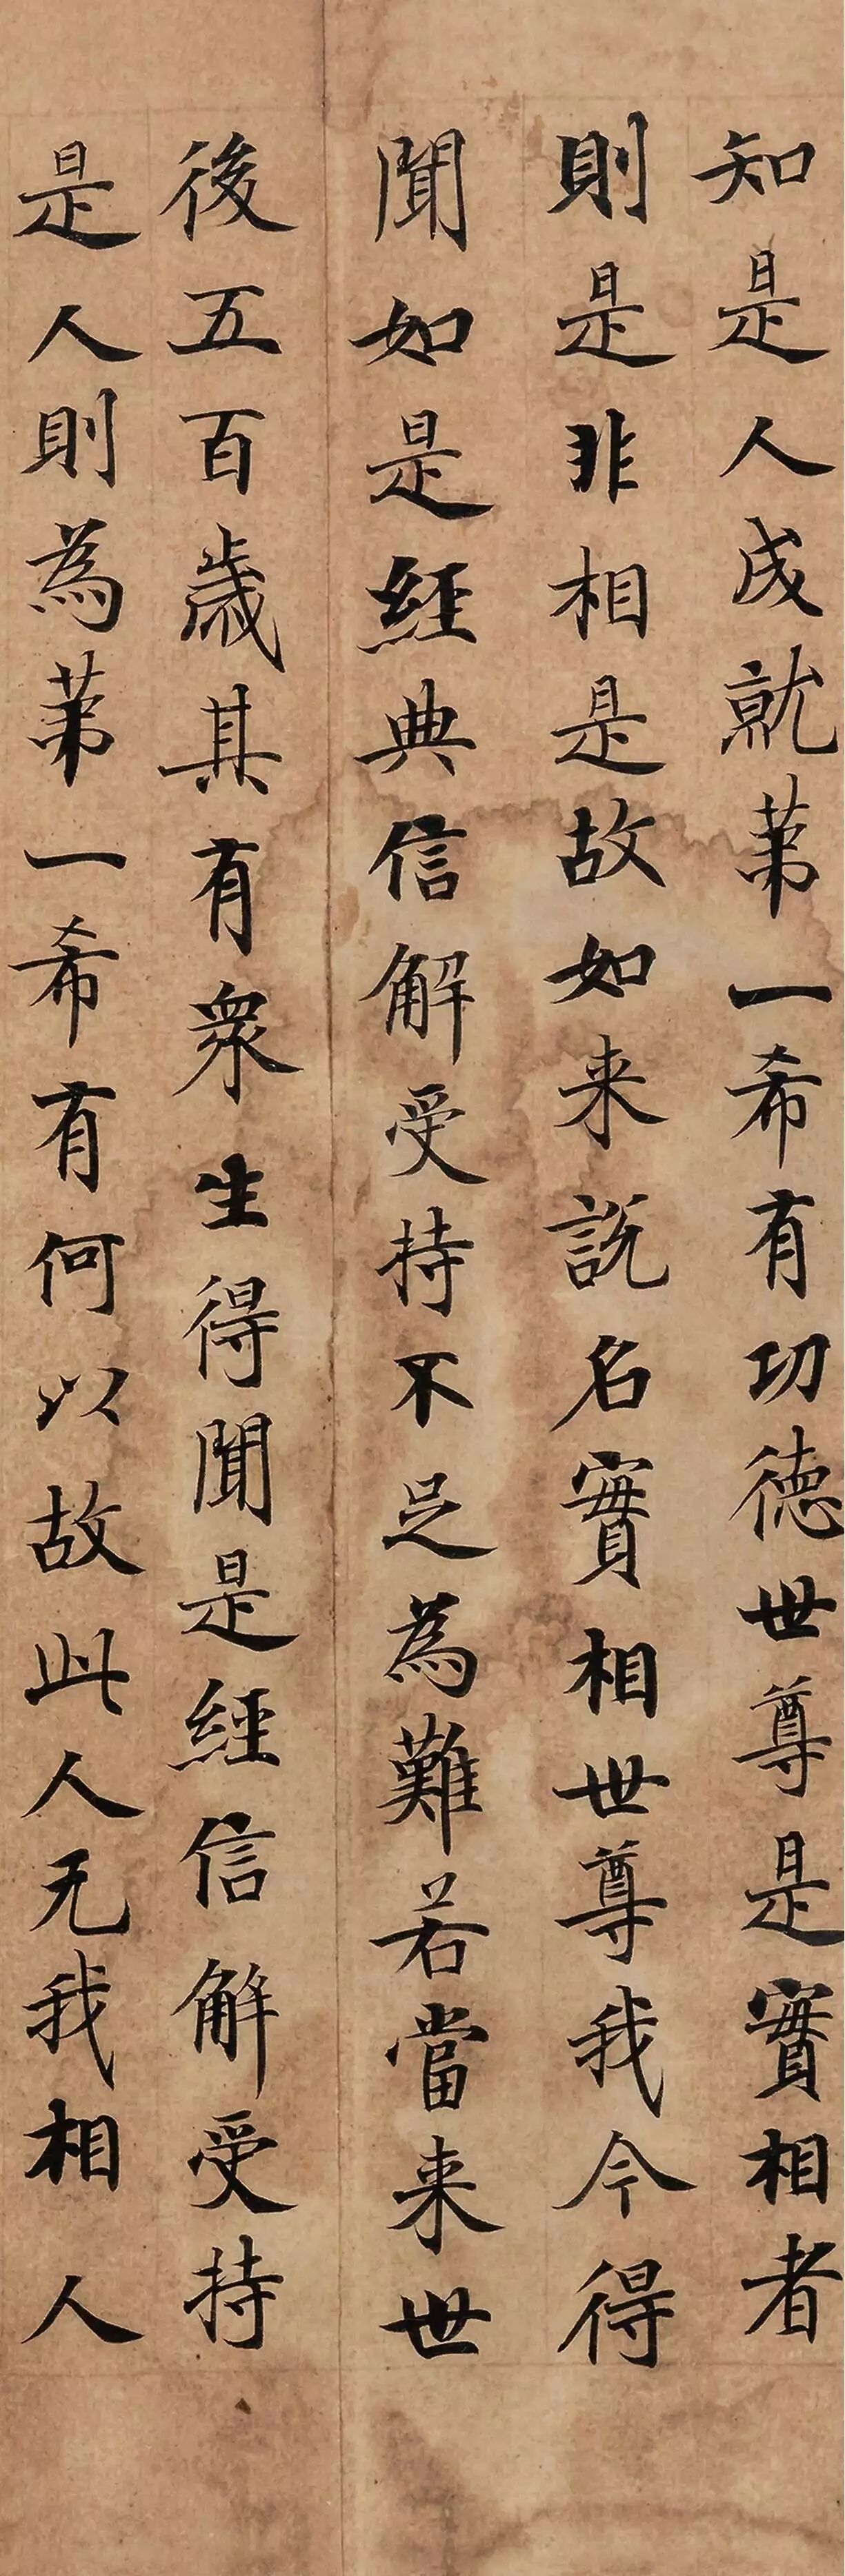 知是人成就苐一希有功德世尊是實相者
則是非相是故如来說名實相世尊我今得
聞如是經典信解受持不足為難若當来世
後五百歲其有衆生得聞是經信解受持
是人則為苐一希有何以故此人无我相人